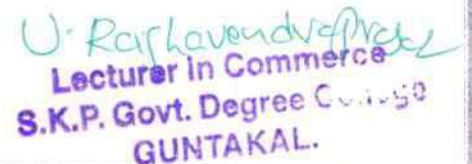 U. Raghavendra Prasad
Lecturer in Commerce
S.K.P. Govt. Degree College
GUNTAKAL.